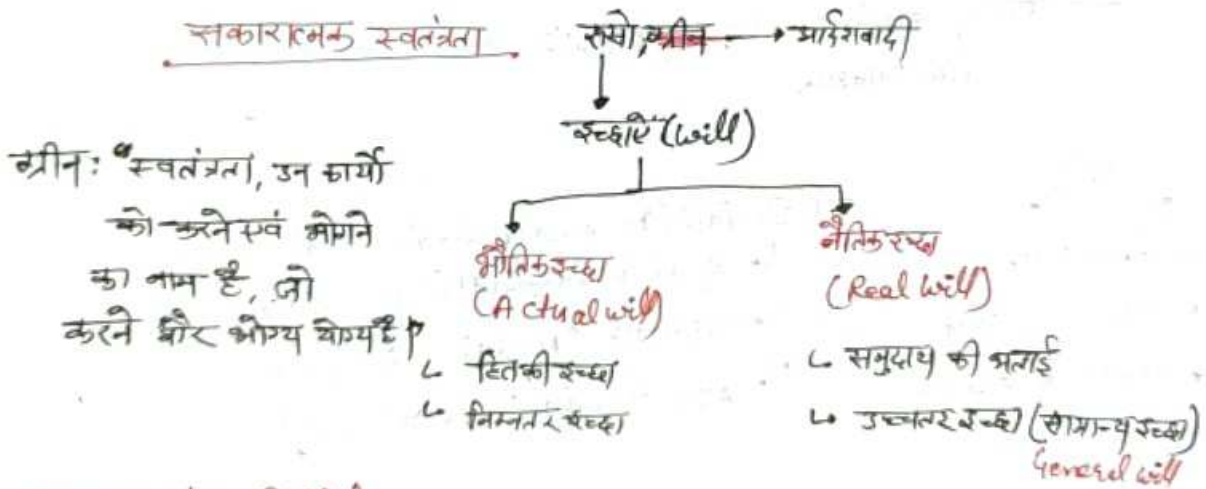 सकारात्मक स्वतंत्रता
रूसो, ग्रीन → आर्दशवादी
इच्छाएँ (will)
ग्रीन: "स्वतंत्रता, उन कार्यों
को करने एवं भोगने
का नाम है, जो
करने और भोग्य योग्य है।"
भौतिक इच्छा
(Actual will)
↳ हित की इच्छा
↳ निम्नतर इच्छा
नैतिक इच्छा
(Real will)
↳ समुदाय की भलाई
↳ उच्चतर इच्छा (सामान्य इच्छा)
General will